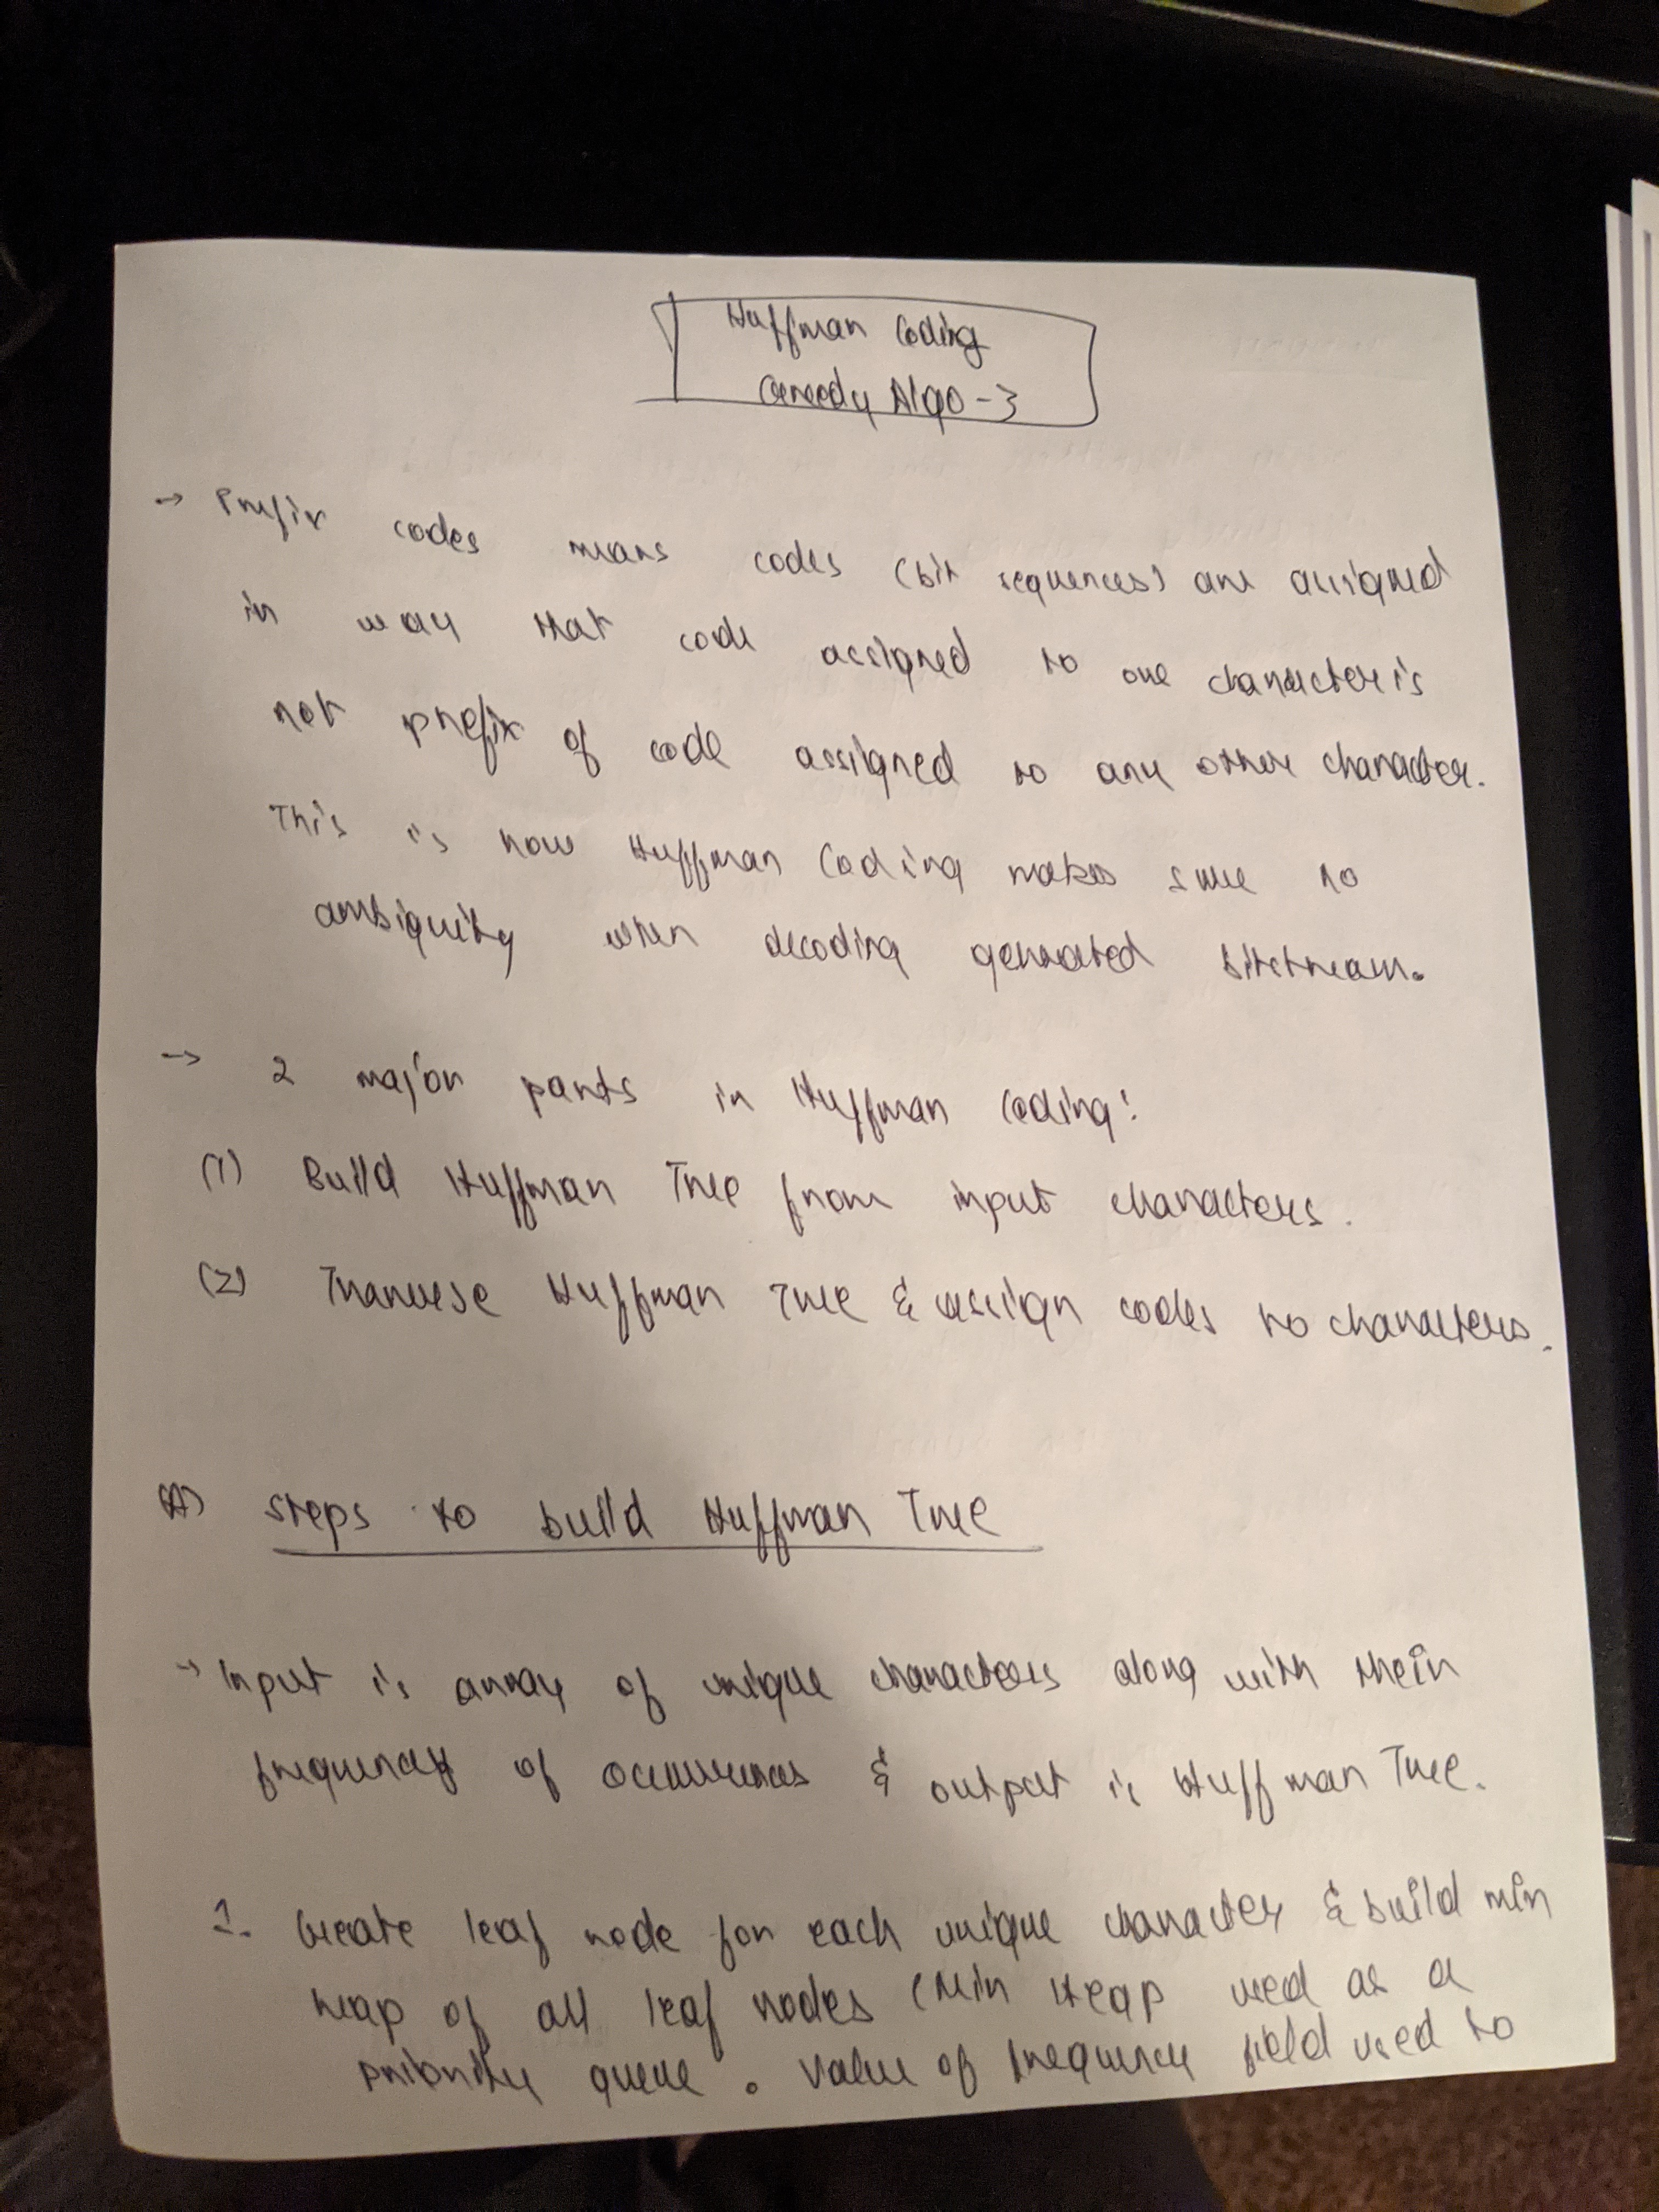 Huffman Coding
Greedy Algo-3
→ Prefix codes means codes (bit sequences) are assigned
in way that code assigned to one character is
not prefix of code assigned to any other character.
This is how Huffman Coding makes sure no
ambiguity when decoding generated bitstream.
→ 2 major parts in Huffman Coding:
(1) Build Huffman Tree from input characters.
(2) Traverse Huffman Tree & assign codes to characters.
A) Steps to build Huffman Tree
→ Input is array of unique characters along with their
frequency of occurrences & output is Huffman Tree.
1. Create leaf node for each unique character & build min
heap of all leaf nodes (Min Heap used as a
priority queue. Value of frequency field used to